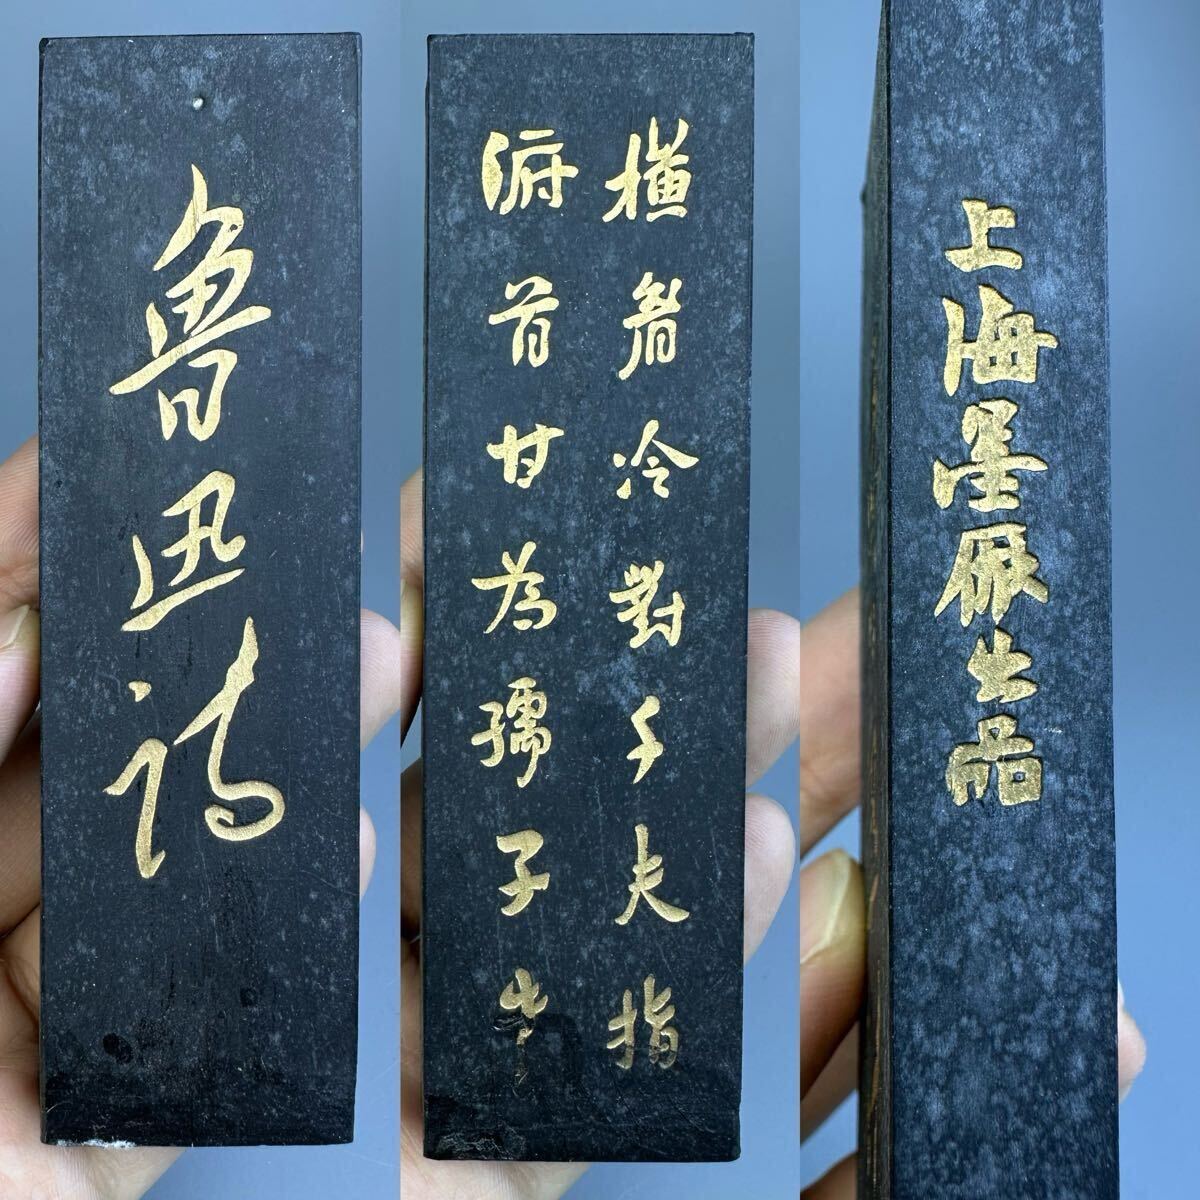 魯迅詩
橫眉冷對千夫指
俯首甘為孺子牛
上海墨厰出品